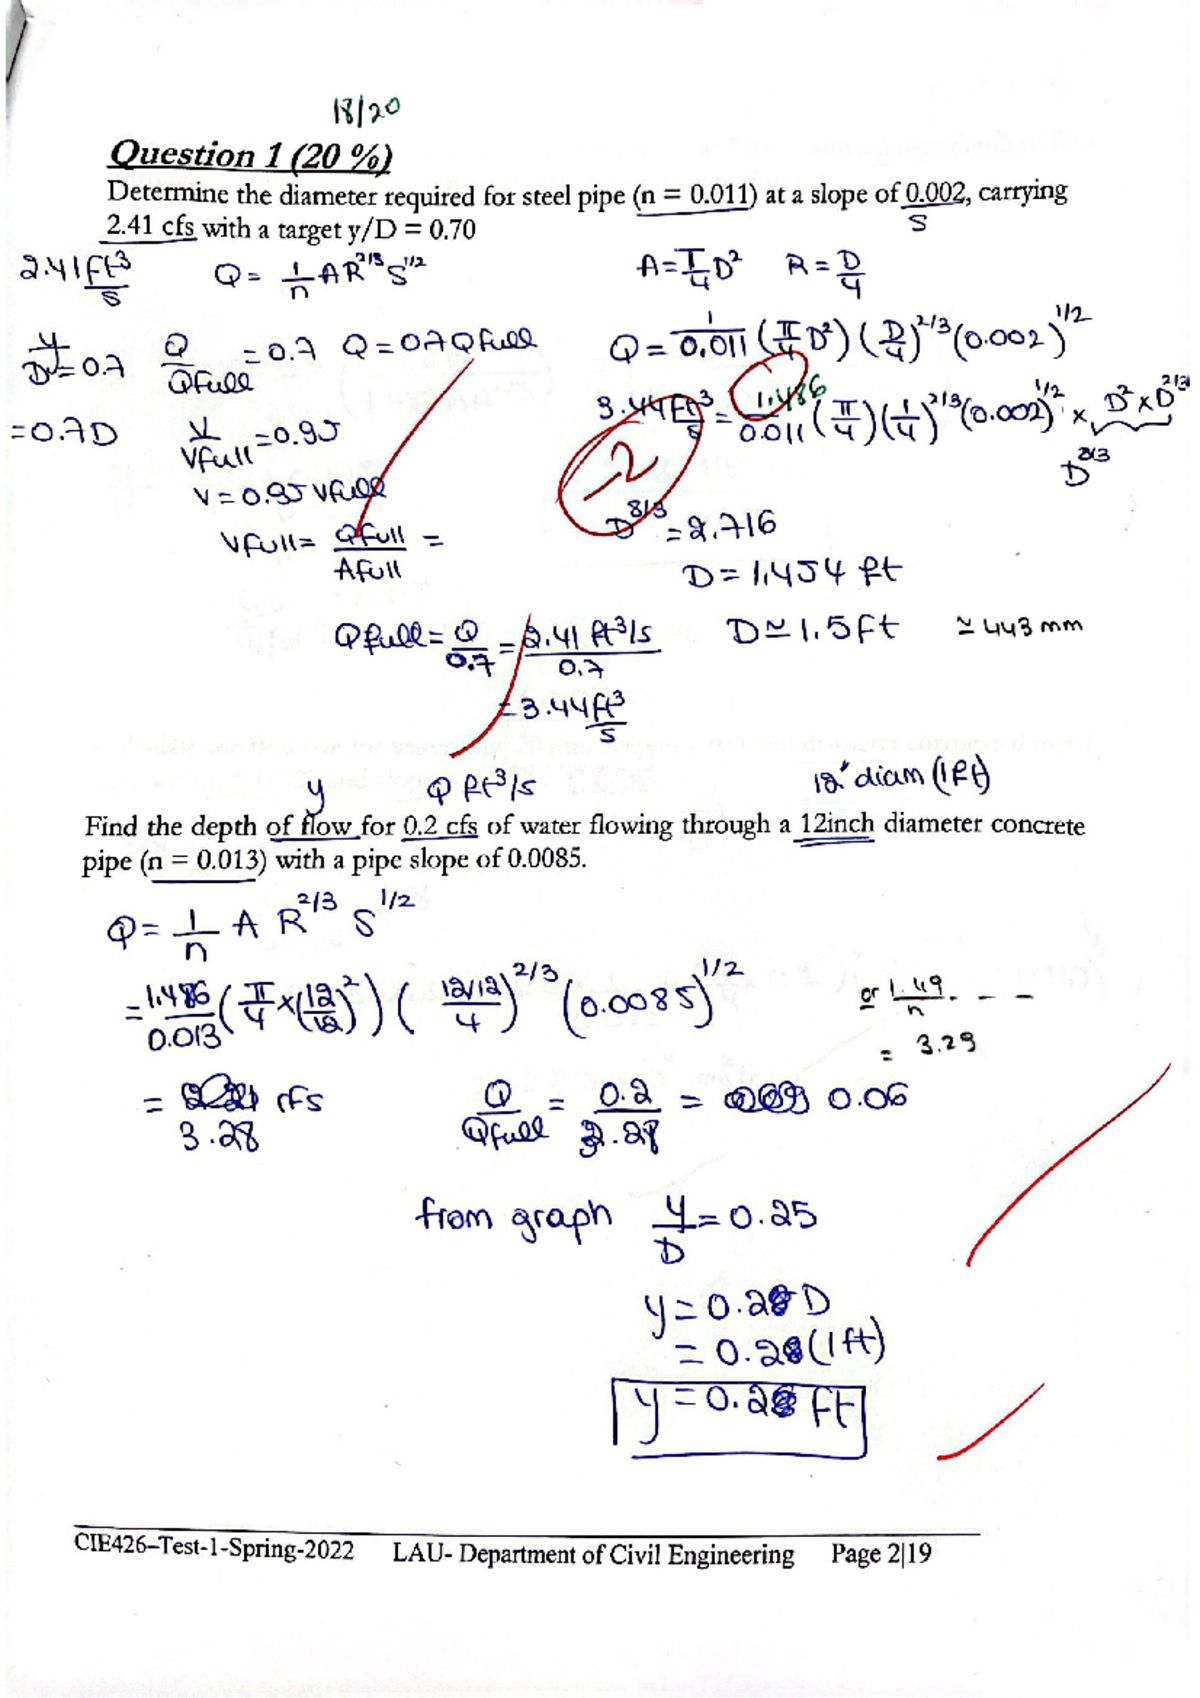 18/20
Question 1 (20 %)
Determine the diameter required for steel pipe (n = 0.011) at a slope of 0.002, carrying
2.41 cfs with a target y/D = 0.70
S
2.41 ft³/s
Q = 1/n A R^2/3 S^1/2
A = π/4 D² R = D/4
y/D = 0.7 Q/Qfull = 0.7 Q = 0.7 Qfull
Q = 1/0.011 (π/4 D²) (D/4)^2/3 (0.002)^1/2
= 0.7D V/Vfull = 0.95
3.44 ft³/s = 1.486/0.011 (π/4) (1/4)^2/3 (0.002)^1/2 × D² × D^2/3
D^8/3
-2
V = 0.95 Vfull
Vfull = Qfull/Afull =
D^8/3 = 2.716
D = 1.454 ft
Qfull = Q/0.7 = 2.41 ft³/s / 0.7
D ≃ 1.5 ft ≃ 443 mm
= 3.44 ft³/s
y Q ft³/s 12" diam (1 ft)
Find the depth of flow for 0.2 cfs of water flowing through a 12inch diameter concrete
pipe (n = 0.013) with a pipe slope of 0.0085.
Q = 1/n A R^2/3 S^1/2
= 1.486/0.013 (π/4 × (12/12)²) (12/12/4)^2/3 (0.0085)^1/2
or 1.49/n - - -
= 3.29
= cfs
3.28
Q/Qfull = 0.2/3.28 = 0.06
from graph y/D = 0.25
y = 0.28 D
= 0.28 (1 ft)
y = 0.28 ft
CIE426–Test-1-Spring-2022 LAU- Department of Civil Engineering Page 2|19